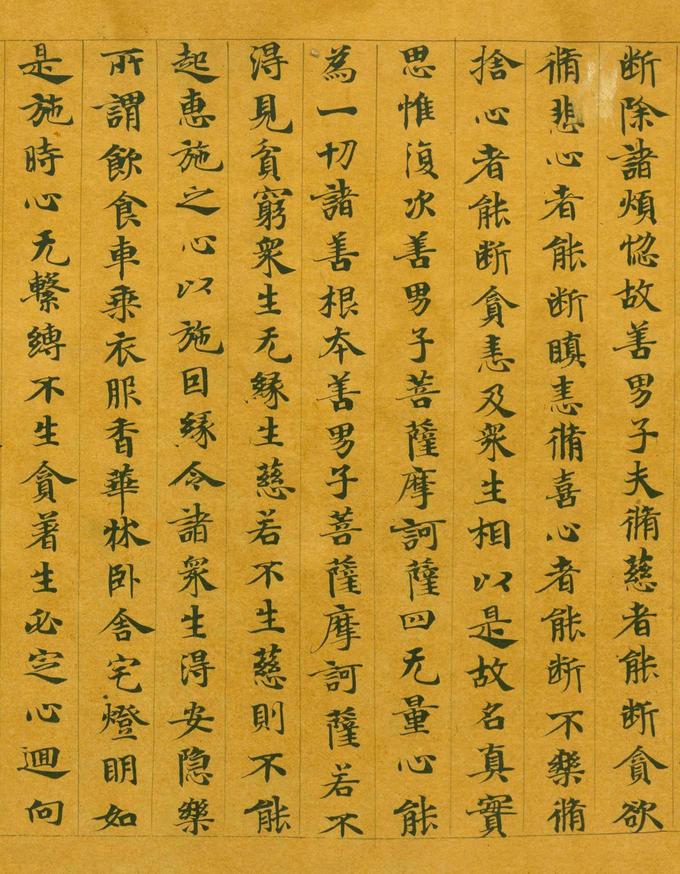 断除諸煩惚故善男子夫脩慈者能断貪欲
脩悲心者能断瞋恚脩喜心者能断不樂脩
捨心者能断貪恚及衆生相以是故名真實
思惟復次善男子菩薩摩訶薩四无量心能
為一切諸善根本善男子菩薩摩訶薩若不
得見貧窮衆生无緣生慈若不生慈則不能
起惠施之心以施因緣令諸衆生得安隐樂
所謂飲食車乗衣服香華牀卧舎宅燈明如
是施時心无繫縛不生貪著生必定心迴向